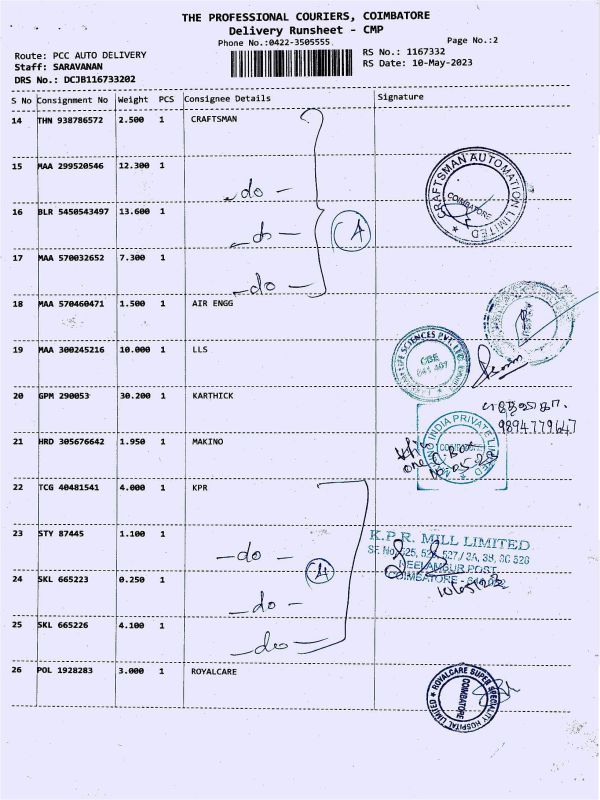 THE PROFESSIONAL COURIERS, COIMBATORE
Delivery Runsheet - CMP
Phone No.:0422-3505555 Page No.:2
Route: PCC AUTO DELIVERY RS No.: 1167332
Staff: SARAVANAN RS Date: 10-May-2023
DRS No.: DCJB116733202
S No Consignment No Weight PCS Consignee Details Signature
14 THN 938786572 2.500 1 CRAFTSMAN
15 MAA 299520546 12.300 1
-do-
CRAFTSMAN AUTOMATION LIMITED
COIMBATORE
16 BLR 5450543497 13.600 1
-do- 4
17 MAA 570032652 7.300 1
-do-
18 MAA 570460471 1.500 1 AIR ENGG
19 MAA 300245216 10.000 1 LLS
LIFE SCIENCES PVT. LTD.
CBE
641 407
20 GPM 290053 30.200 1 KARTHICK
9894779647
21 HRD 305676642 1.950 1 MAKINO
INDIA PRIVATE LIMITED
one C. Box
22 TCG 40481541 4.000 1 KPR
23 STY 87445 1.100 1
-do- 4
K.P.R. MILL LIMITED
NEELAMBUR POST
COIMBATORE
24 SKL 665223 0.250 1
-do-
25 SKL 665226 4.100 1
-do-
26 POL 1928283 3.000 1 ROYALCARE
ROYALCARE SUPER SPECIALITY HOSPITAL LIMITED
COIMBATORE